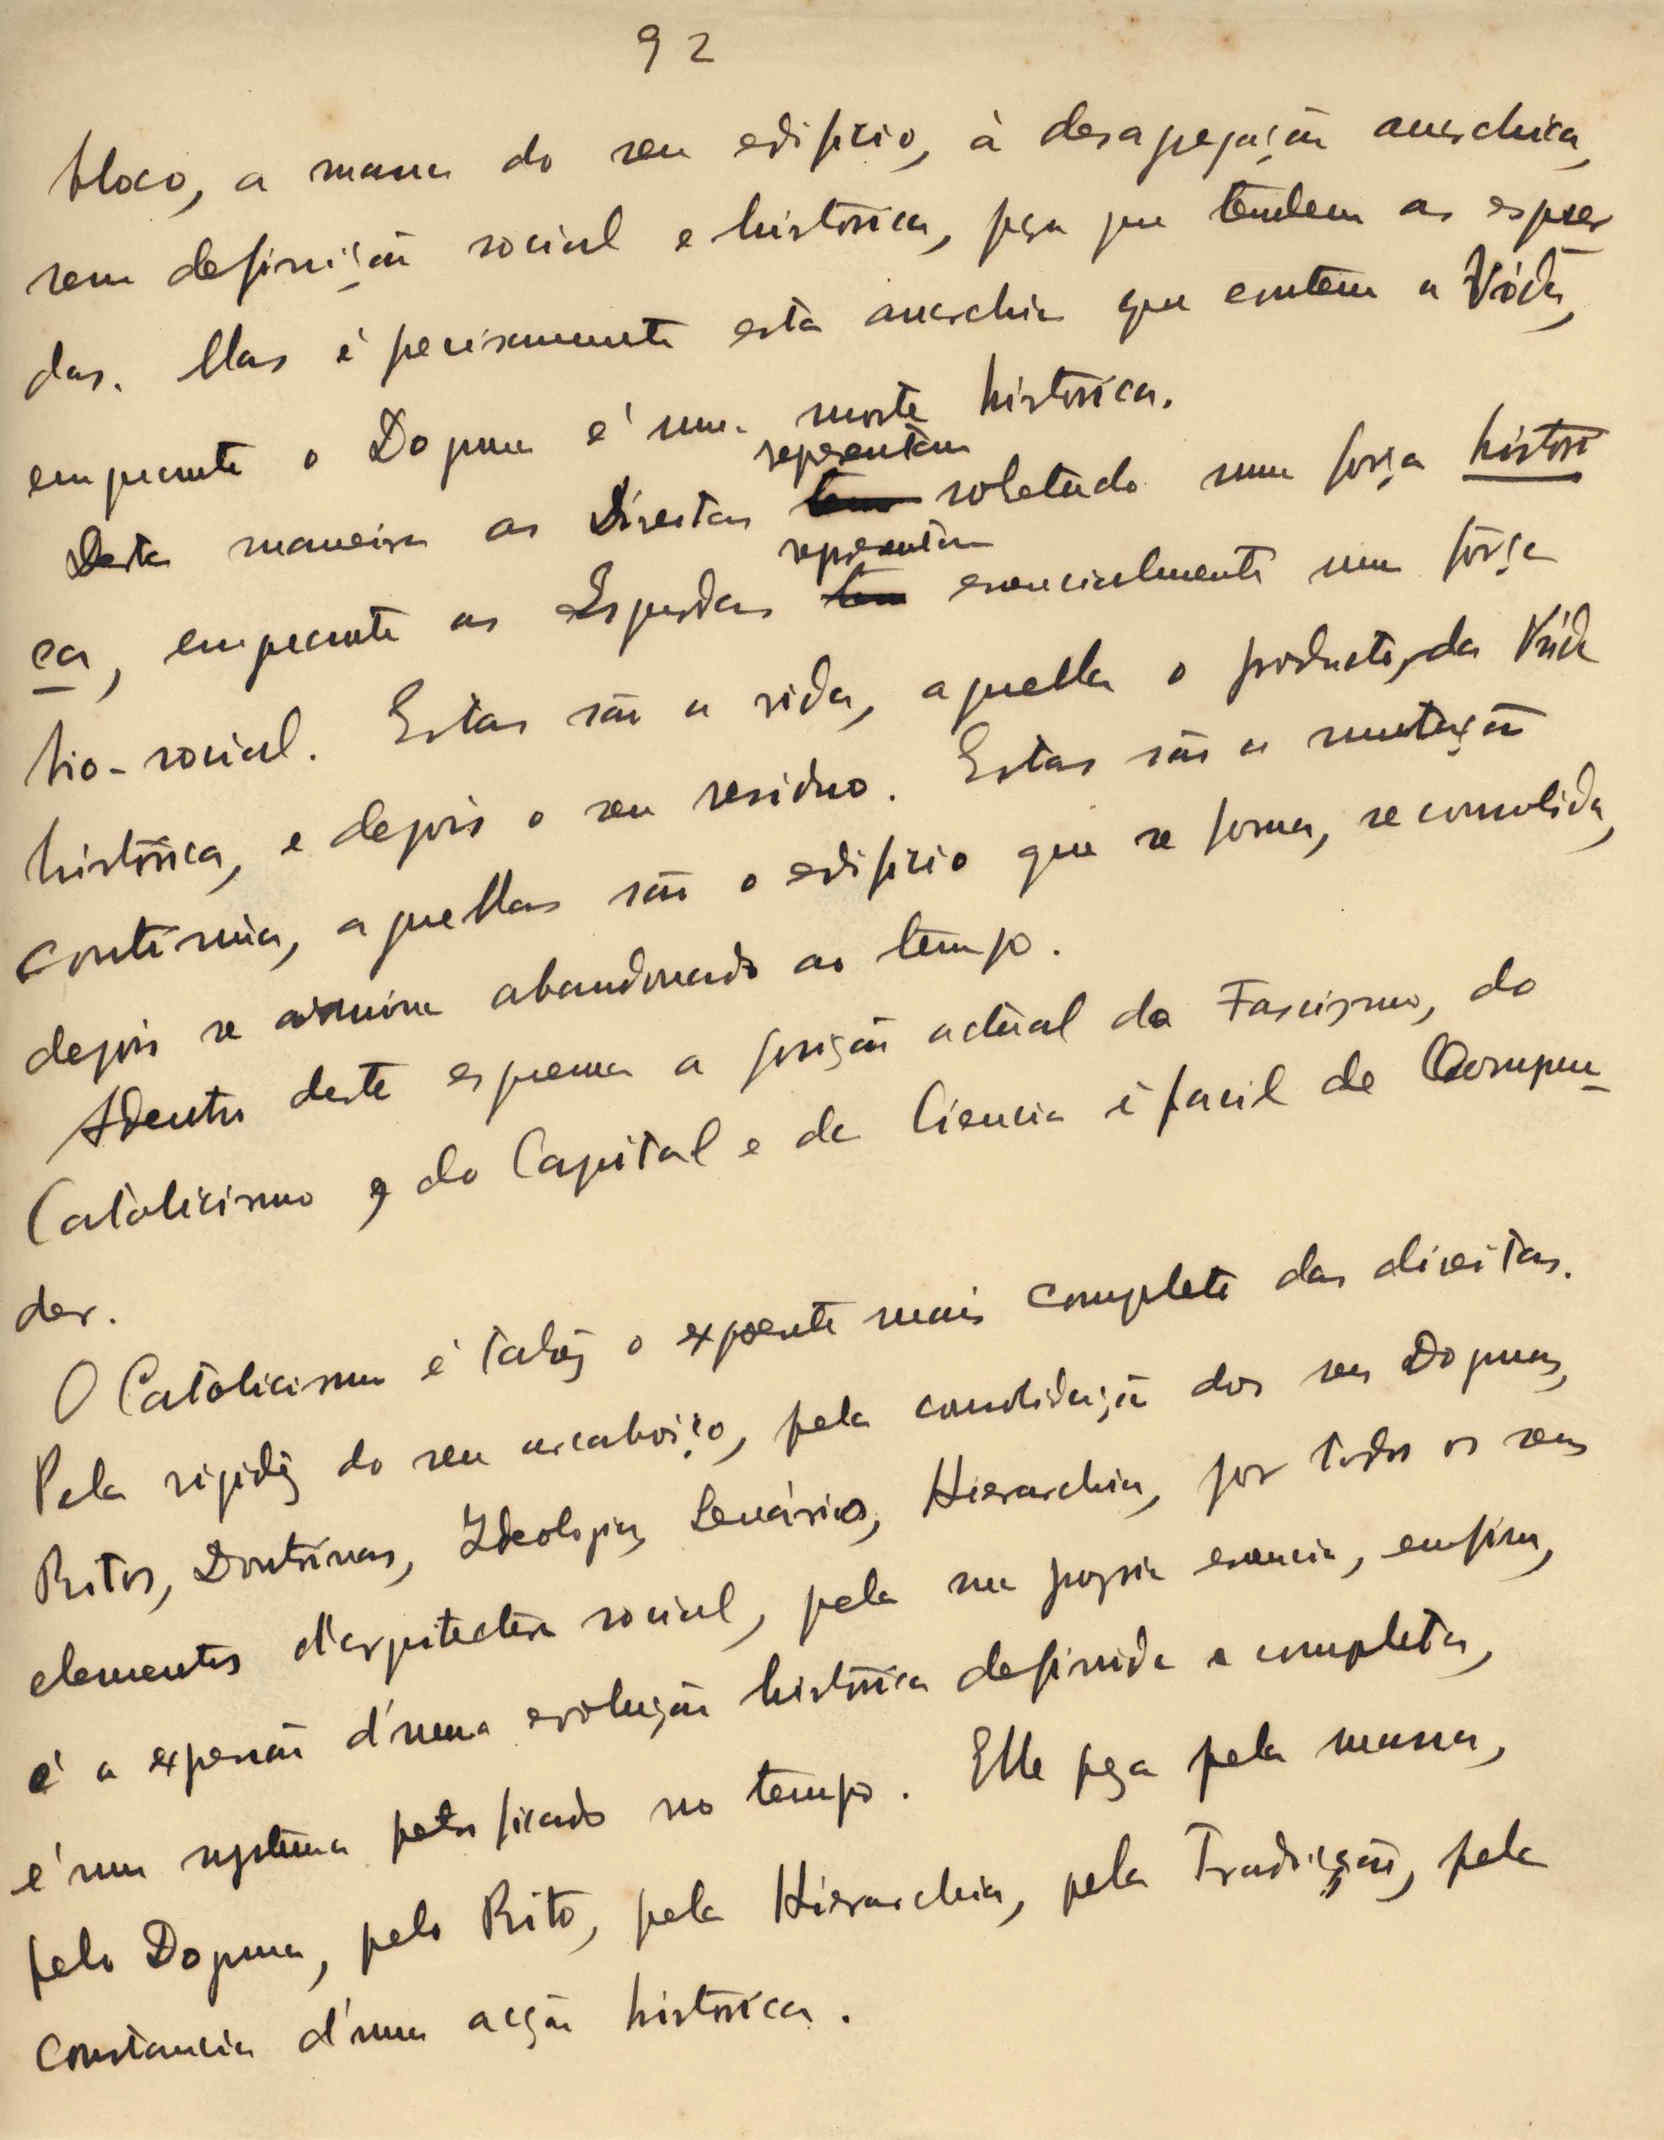 92
bloco, a massa do seu edificio, à desagregação anarchica,
sem definição social e historica, para que tendem as esquer
das. Mas é precisamente esta anarchia que contem a Vida,
emquanto o Dogma é uma morte historica.
representam
Desta maneira as Direitas tem sobretudo uma força histori
representam
ca, emquanto as Esquerdas tem essencialmente uma força
bio-social. Estas são a vida, aquella o producto, da Vida
historica, e depois o seu residuo. Estas são a mutação
continua, aquellas são o edificio que se forma, se consolida,
depois se arruina abandonado ao tempo.
Adentro deste esquema a posição actual do Fascismo, do
Catolicismo e do Capital e da Ciencia é facil de Compreen-
der.
O Catolicismo é talvez o expoente mais completo das direitas.
Pela rigidez do seu arcaboiço, pela consolidação dos seus Dogmas,
Ritos, Doutrinas, Ideologias, Cenários, Hierarchia, por todos os seus
elementos d'arquitectura social, pela sua propria essencia, emfim,
é a expressão d'uma evolução historica definida e completa,
é um systema petrificado no tempo. Elle peza pela massa,
pelo Dogma, pelo Rito, pela Hierarchia, pela Tradicção, pela
constancia d'uma acção historica.